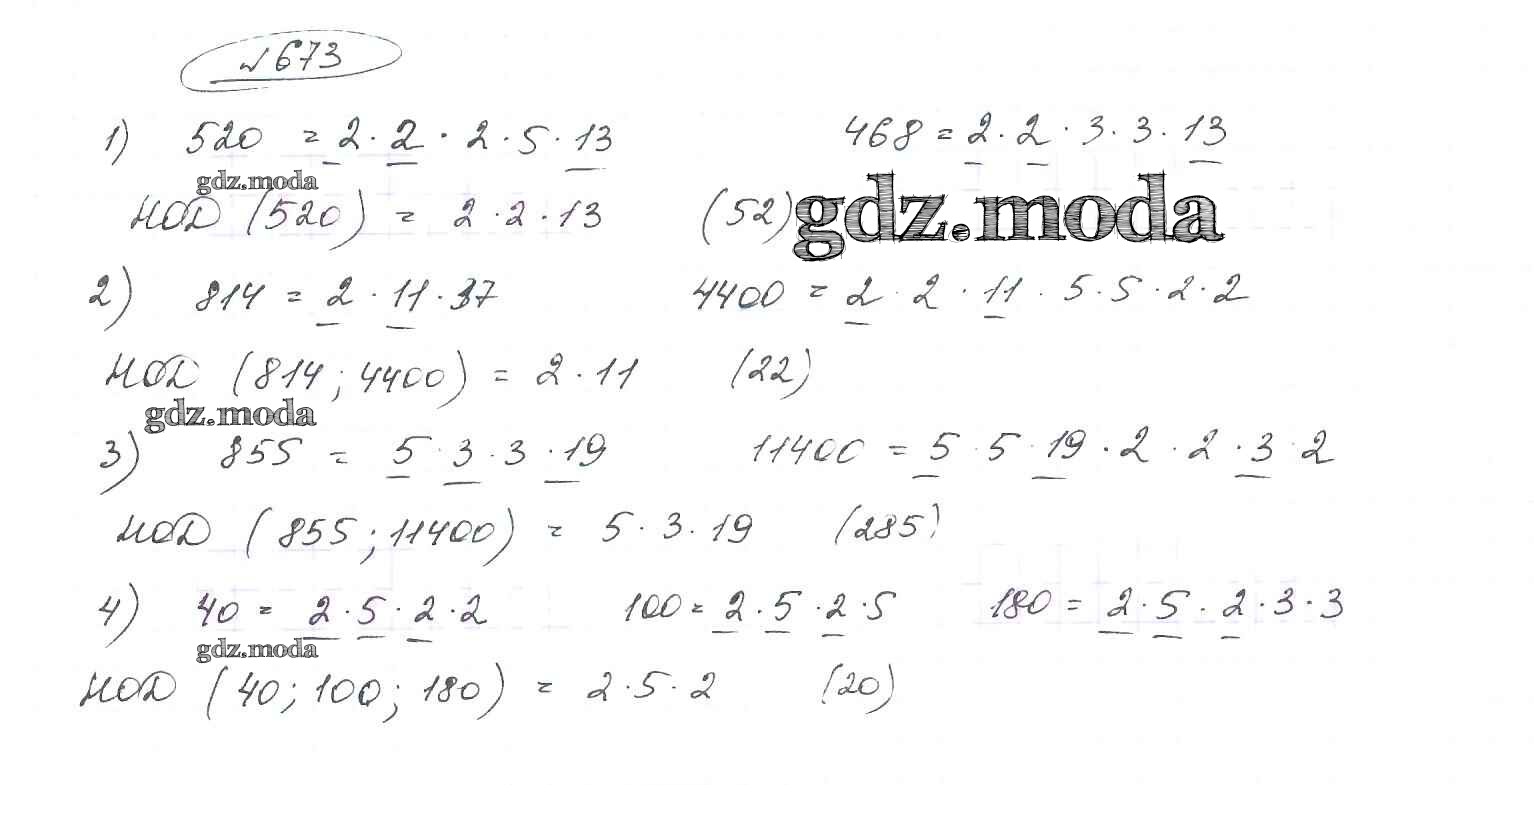 №673
1) 520 = 2 · 2 · 2 · 5 · 13 468 = 2 · 2 · 3 · 3 · 13
gdz.moda
НОД (520) = 2 · 2 · 13 (52) gdz.moda
2) 814 = 2 · 11 · 37 4400 = 2 · 2 · 11 · 5 · 5 · 2 · 2
НОД (814; 4400) = 2 · 11 (22)
gdz.moda
3) 855 = 5 · 3 · 3 · 19 11400 = 5 · 5 · 19 · 2 · 2 · 3 · 2
НОД (855; 11400) = 5 · 3 · 19 (285)
4) 40 = 2 · 5 · 2 · 2 100 = 2 · 5 · 2 · 5 180 = 2 · 5 · 2 · 3 · 3
gdz.moda
НОД (40; 100; 180) = 2 · 5 · 2 (20)